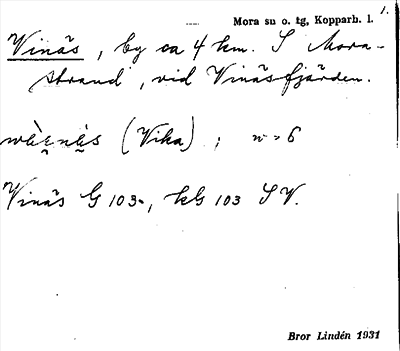 1.
Mora su o. tg, Kopparb. l.
Vinäs, by ca 4 km. S Mora-
strand, vid Vinäsfjärden.
(Vika); w = 6
Vinäs G 103, kG 103 SV.
Bror Lindén 1931